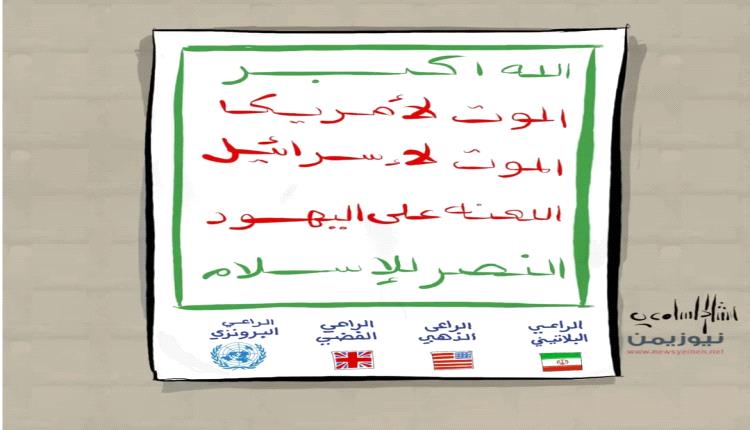 الله اكبر
الموت لأمريكا
الموت لإسرائيل
اللعنه على اليهود
النصر للإسلام
الراعي البلاتيني
الراعي الذهبي
الراعي الفضي
الراعي البرونزي
رشاد السامعي
نيوزيمن
www.newsyemen.net